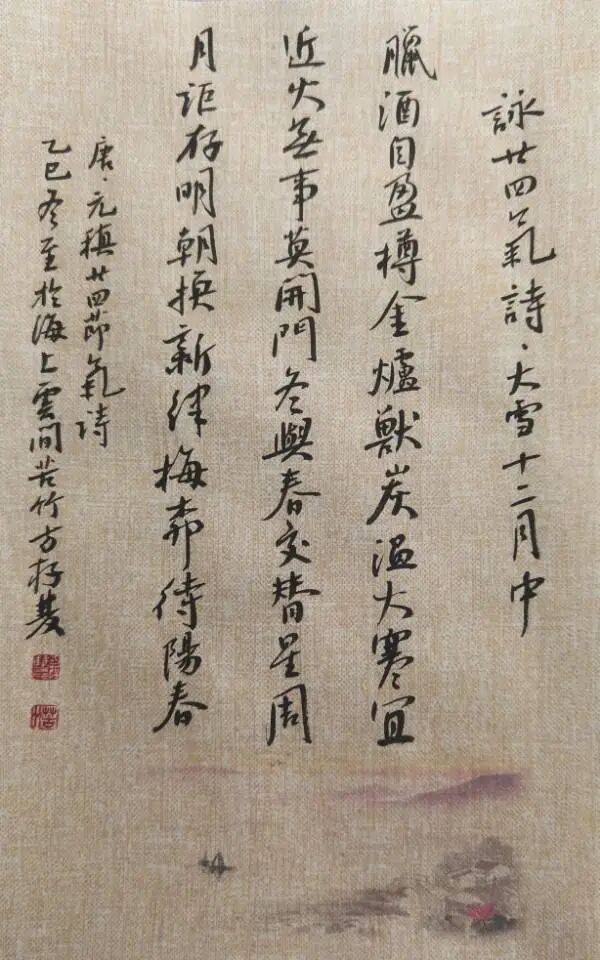 詠廿四氣詩·大雪十二月中
臘酒自盈樽金爐獸炭温大寒宜
近火無事莫開門冬與春交替星周
月詎存明朝換新律梅柳待陽春
唐·元稹廿四節氣詩
乙巳冬至於海上雲間苦竹方存